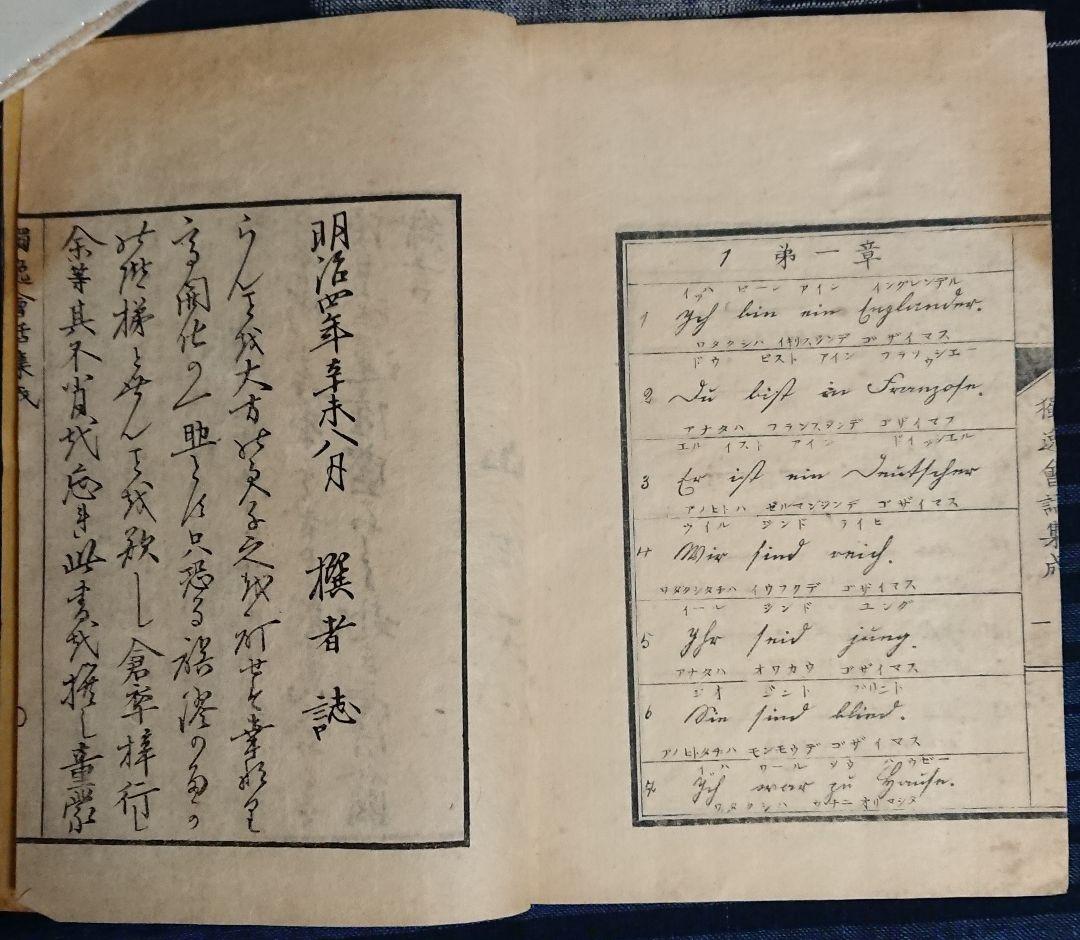 獨逸會話集成
余等其不肖を忘れ此書を撰し童蒙
の階梯とせんことを欲し倉卒梓行し
開化の一助とす只恐る誤謬の多か
らんことを大方の君子之を訂せ幸
明治四年辛未八月 撰者 誌
1 第一章
イッハ ビーン アイン イングレンデル
1 Ich bin ein Englander.
ワタクシハ イギリスジンデ ゴザイマス
ドウ ビスト アイン フランツォシエー
2 Du bist ein Franzose.
アナタハ フランスジンデ ゴザイマス
エル イスト アイン ドイッシエル
3 Er ist ein Deutscher
アノヒトハ ゼルマンジンデ ゴザイマス
ウイル ジンド ライヒ
4 Wir sind reich.
ワタクシタチハ イウフクデ ゴザイマス
イール ジンド ユング
5 Ihr seid jung.
アナタハ オワカウ ゴザイマス
ジオ ジント ブリント
6 Sie sind blind.
アノヒトタチハ モンモウデ ゴザイマス
イハ ワール ツウ ハウゼー
7 Ich war zu Hause.
ワタクシハ ウチニ オリマシタ
獨逸會話集成 一